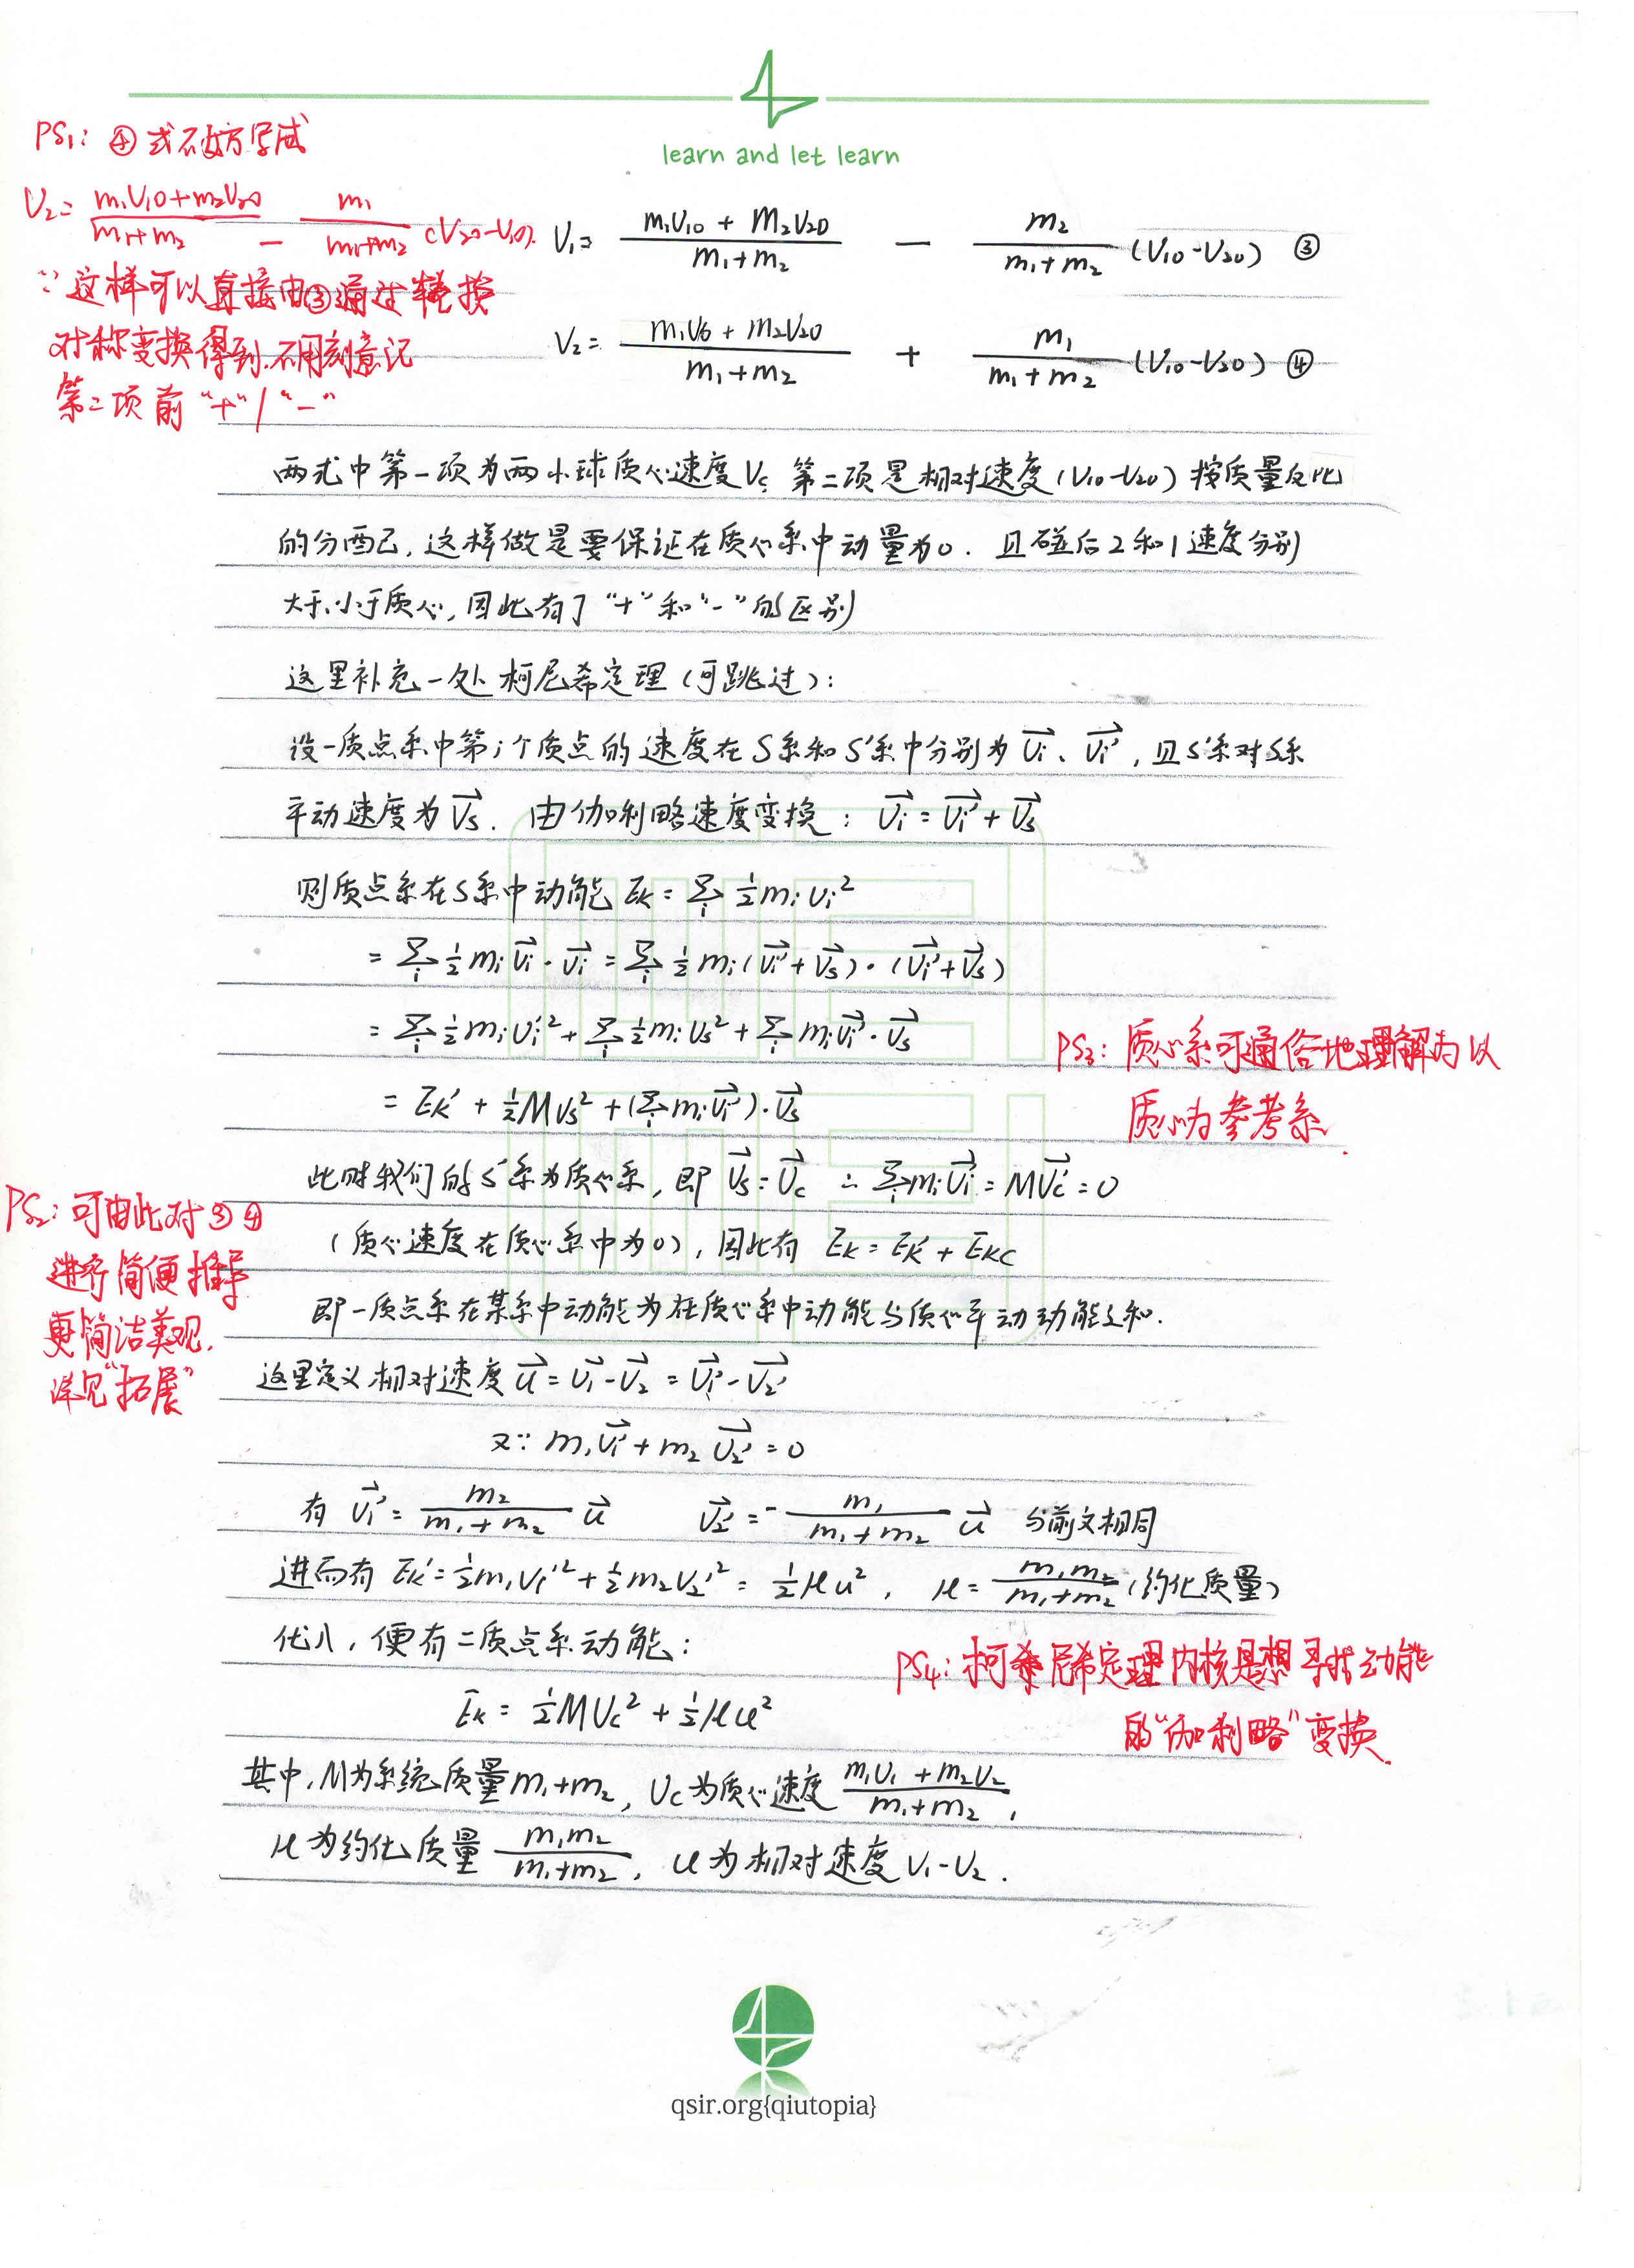 learn and let learn
PS₁: ④式不妨写成
V₂= (m₁V₁₀+m₂V₂₀)/(m₁+m₂) - m₁/(m₁+m₂) (V₂₀-V₁₀).
∵这样可以直接由③通过轮换
对称变换得到.不用刻意记
第二项前“+”/“-”
V₁= (m₁V₁₀+m₂V₂₀)/(m₁+m₂) - m₂/(m₁+m₂) (V₁₀-V₂₀) ③
V₂= (m₁V₁₀+m₂V₂₀)/(m₁+m₂) + m₁/(m₁+m₂) (V₁₀-V₂₀) ④
两式中第一项为两小球质心速度Vc, 第二项是相对速度(V₁₀-V₂₀)按质量反比
的分配, 这样做是要保证在质心系中动量为0. 且碰后2和1速度分别
大于、小于质心, 因此有了“+”和“-”的区别
这里补充一处柯尼希定理(可跳过):
设一质点系中第i个质点的速度在S系和S'系中分别为v⃗ᵢ、v⃗ᵢ', 且S'系对S系
平动速度为v⃗s. 由伽利略速度变换: v⃗ᵢ=v⃗ᵢ'+v⃗s
则质点系在S系中动能 Eᴋ=∑ᵢ ½mᵢvᵢ²
=∑ᵢ ½mᵢv⃗ᵢ·v⃗ᵢ=∑ᵢ ½mᵢ(v⃗ᵢ'+v⃗s)·(v⃗ᵢ'+v⃗s)
=∑ᵢ ½mᵢvᵢ'²+∑ᵢ ½mᵢvs²+∑ᵢ mᵢv⃗ᵢ'·v⃗s
=Eᴋ'+½Mvs²+(∑ᵢ mᵢv⃗ᵢ')·v⃗s
PS₃: 质心系可通俗地理解为以
质心为参考系.
此时我们的S'系为质心系, 即 v⃗s=v⃗c ∴∑ᵢ mᵢv⃗ᵢ'=Mv⃗c'=0
(质心速度在质心系中为0), 因此有 Eᴋ=Eᴋ'+Eᴋc
即一质点系在某系中动能为在质心系中动能与质心平动动能之和.
PS₂: 可由此对③④
进行简便推导
更简洁美观.
详见“拓展”
这里定义相对速度u⃗=v⃗₁-v⃗₂=v⃗₁'-v⃗₂'
又∵ m₁v⃗₁'+m₂v⃗₂'=0
有 v⃗₁'= m₂/(m₁+m₂) u⃗ v⃗₂'=- m₁/(m₁+m₂) u⃗ 与前文相同
进而有 Eᴋ'=½m₁v₁'²+½m₂v₂'²=½μu², μ= m₁m₂/(m₁+m₂) (约化质量)
代入, 便有二质点系动能:
Eᴋ=½Mvc²+½μu²
PS₄: 柯尼希定理内核是想寻找动能
的“伽利略”变换.
其中, M为系统质量m₁+m₂, vc为质心速度 (m₁v₁+m₂v₂)/(m₁+m₂),
μ为约化质量 m₁m₂/(m₁+m₂), u为相对速度 v₁-v₂.
qsir.org{qiutopia}